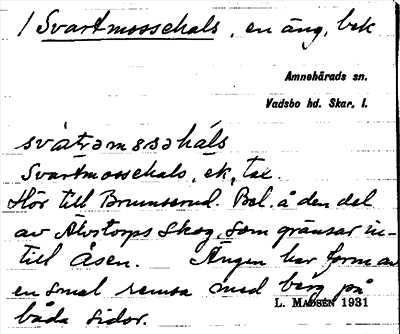 / Svartmossehals, en äng, bek
Amnehärads sn.
Vadsbo hd. Skar. l.
svàtrəmɷsəháls
Svartmossehals, ek, tax.
Hör till Brumserud. Bel. å den del
av Älvstorps skog, som gränsar in-
till Åsen. Ängen har form av
en smal remsa med berg på
båda sidor.
L. MADSÉN 1931